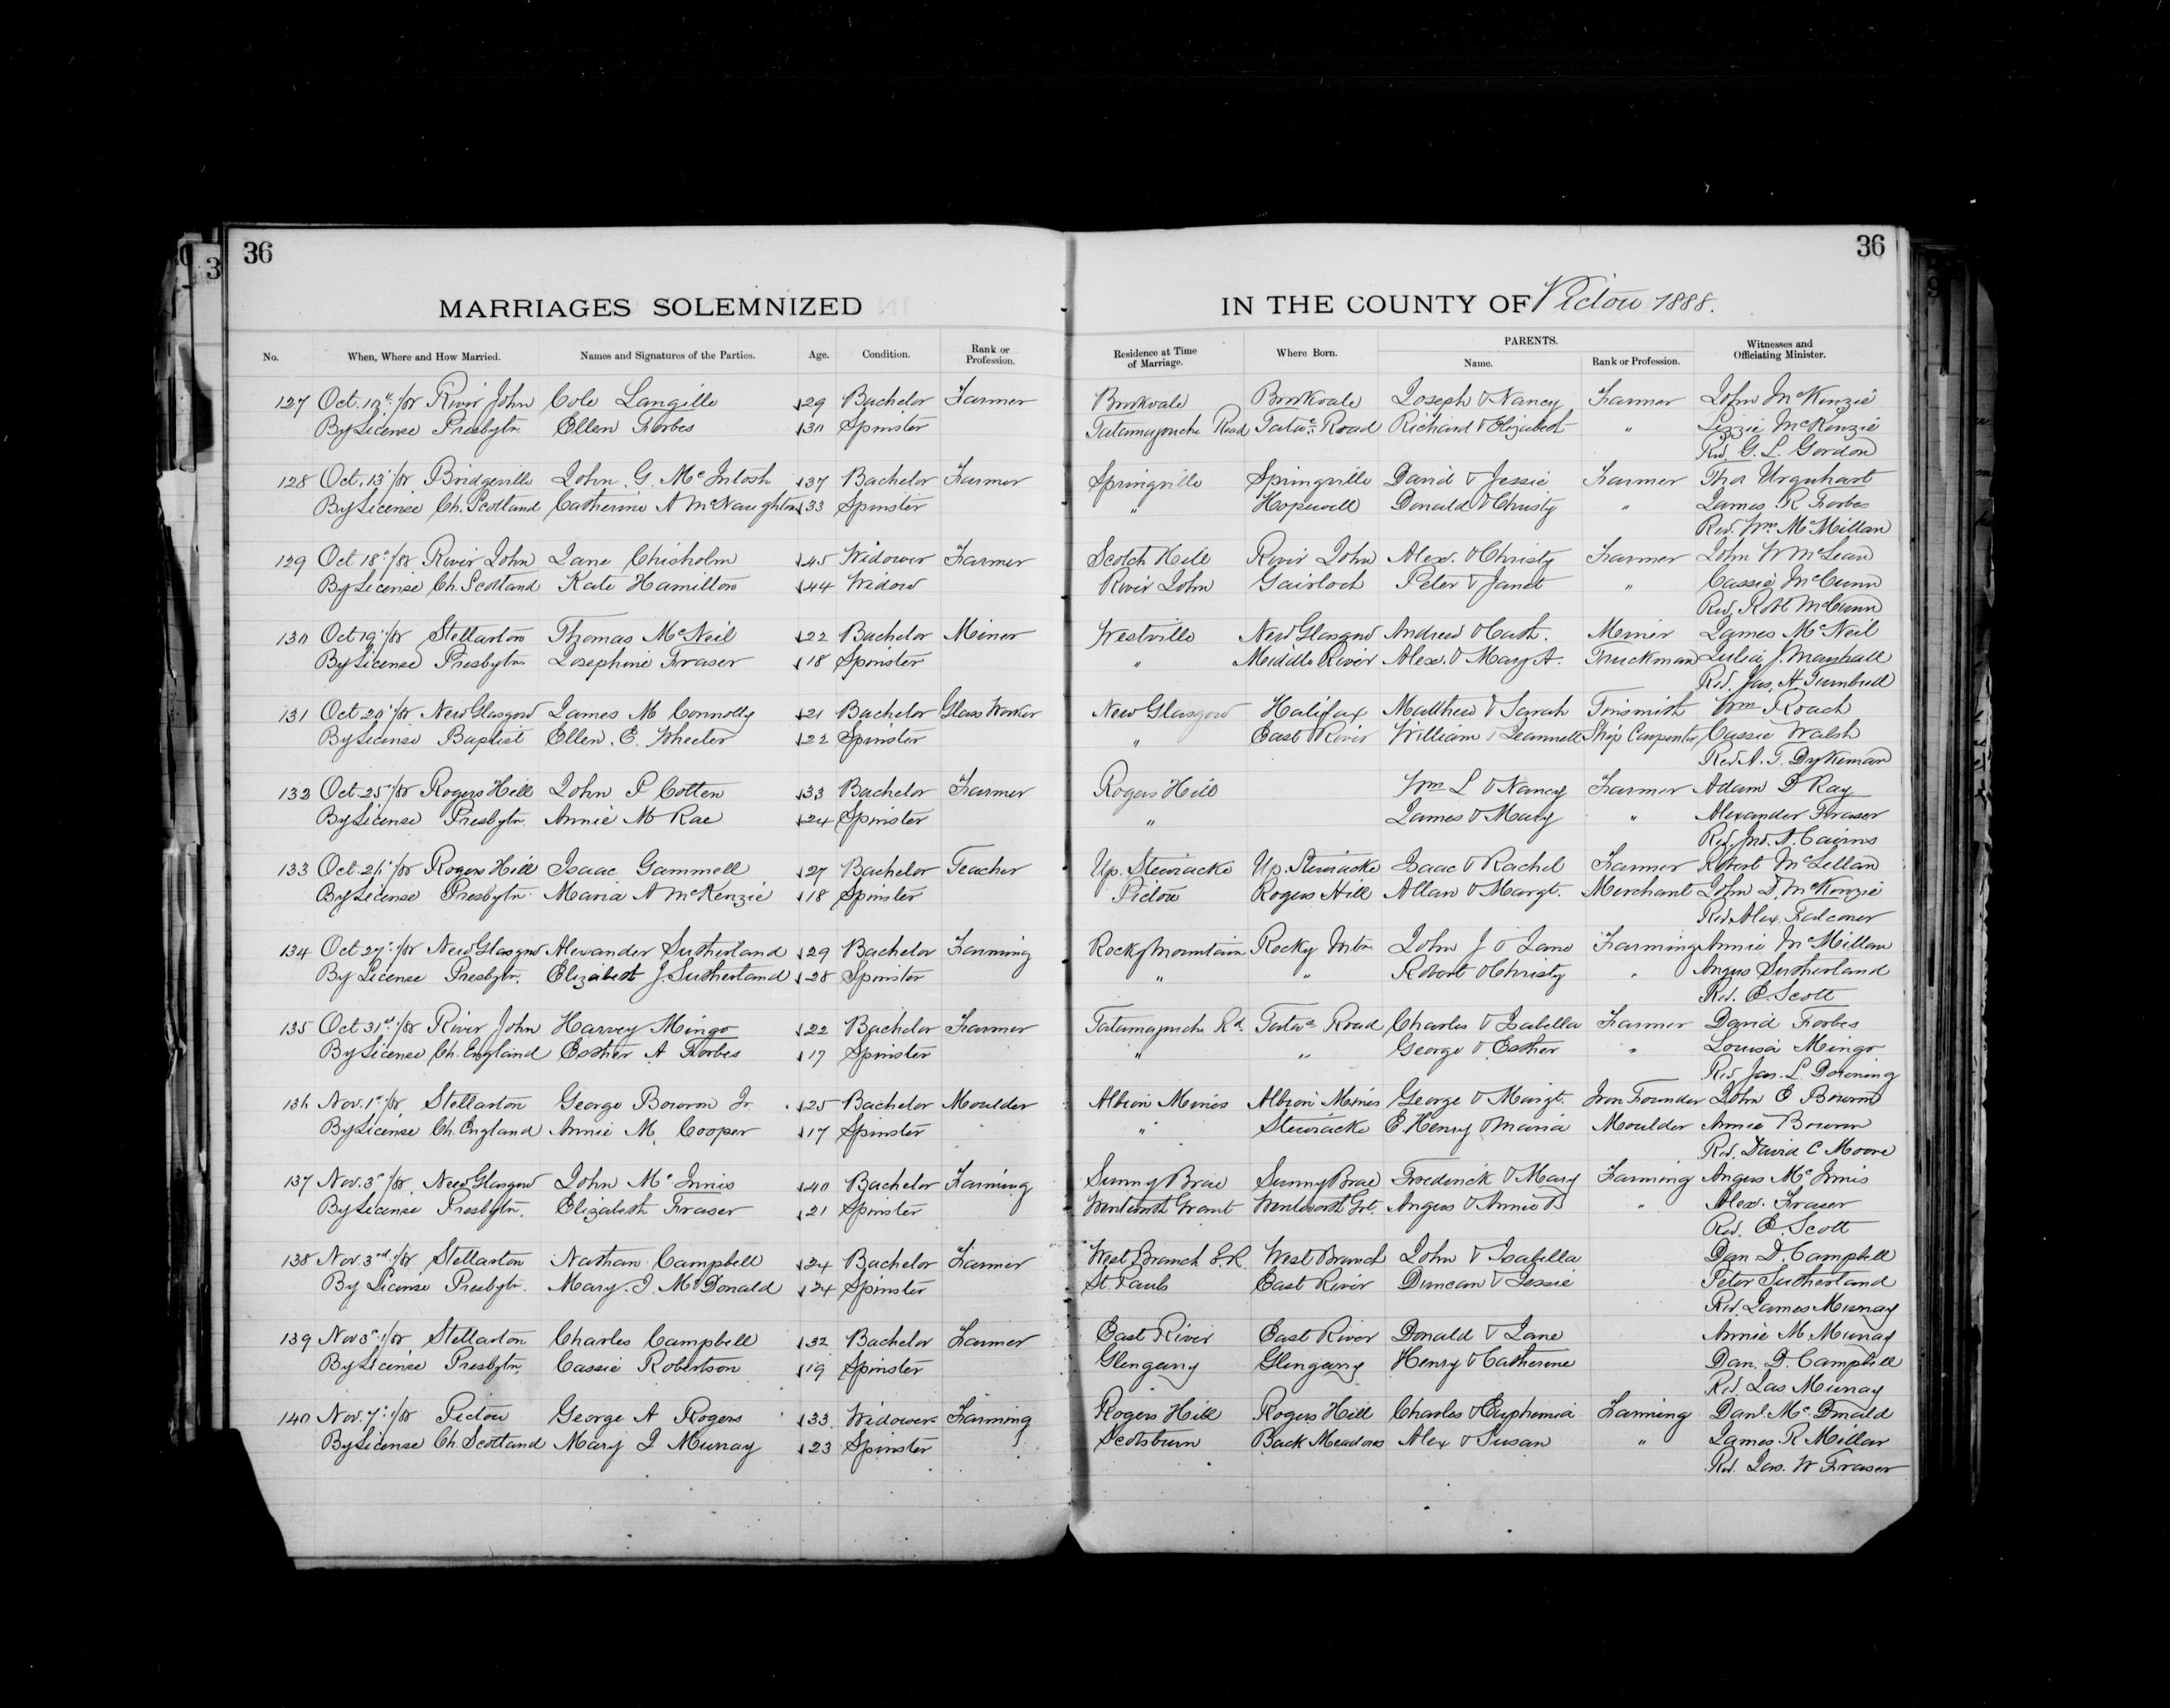 36
36
MARRIAGES SOLEMNIZED
IN THE COUNTY OF Pictou 1888.
No. When, Where and How Married. Names and Signatures of the Parties. Age. Condition. Rank or Profession. Residence at Time of Marriage. Where Born. PARENTS. Name. Rank or Profession. Witnesses and Officiating Minister.
127 Oct. /88 River John Cole Langille 29 Bachelor Farmer Brookvale Joseph & Nancy Farmer John McKenzie
By License Presbytn Ellen Forbes 30 Spinster Tatamagouche Road Tata. Road Richard & Elizabeth " Lizzie McKenzie
Rev. G. L. Gordon
128 Oct. 13/88 Bridgeville John G. McIntosh 37 Bachelor Farmer Springville Springville David & Jessie Farmer Thos Urquhart
By License Ch. Scotland Catherine A McNaughton 33 Spinster " Hopewell Donald & Christy " James R Forbes
Rev. Wm McMillan
129 Oct 18/88 River John Chisholm 45 Widower Farmer Scotch Hill River John Alex. & Christy Farmer John W McLean
By License Ch. Scotland Kate Hamilton 44 Widow River John Gairloch Peter & Janet " Cassie McCunn
Rev. Robt McCunn
130 Oct 19/88 Stellarton Thomas McNeil 22 Bachelor Miner Westville New Glasgow Andrew & Cath. Miner James McNeil
By License Presbytn Josephine Fraser 18 Spinster " Middle River Alex. & Mary A. Truckman Julia J. Marshall
Rev. Jas. H. Turnbull
131 Oct 20/88 New Glasgow James M Connolly 21 Bachelor Glass Worker New Glasgow Halifax Matthew & Sarah Tinsmith Wm Roach
By License Baptist Ellen. E. Wheeler 22 Spinster " East River William & Jeannett Ship Carpenter Cassie Walsh
Rev. A. T. Dykeman
132 Oct. 25/88 Rogers Hill John P Cotten 33 Bachelor Farmer Rogers Hill Wm L & Nancy Farmer Adam D Ray
By License Presbytn. Annie M Rae 24 Spinster " James & Mary " Alexander Fraser
Rev. Jno. A. Cairns
133 Oct. /88 Rogers Hill Isaac Gammell 27 Bachelor Teacher Up. Stewiacke Up. Stewiacke Isaac & Rachel Farmer Robert McLellan
By License Presbytn. Maria A McKenzie 18 Spinster Pictou Rogers Hill Allan & Margt. Merchant John D. McKenzie
Rev. Alex. Falconer
134 Oct 27/88 New Glasgow Alexander Sutherland 29 Bachelor Farming Rocky Mountain Rocky Mtn John J & Jane Farming Annie McMillan
By License Presbytn. Elizabeth J. Sutherland 28 Spinster " " Robert & Christy " Angus Sutherland
Rev. E. Scott
135 Oct 31st/88 River John Harvey Mingo 22 Bachelor Farmer Tatamagouche Rd Tata Road Charles & Isabella Farmer David Forbes
By License Ch. England Esther A Forbes 17 Spinster " " George & Esther " Louisa Mingo
Rev. Jas. L. Downing
136 Nov. 1/88 Stellarton George Bowron Jr. 25 Bachelor Moulder Albion Mines Albion Mines George & Margt. Iron Founder John E Bowron
By License Ch. England Annie M. Cooper 17 Spinster " Stewiacke E. Henry & Maria Moulder Annie Bowron
Rev. David C Moore
137 Nov. 3/88 New Glasgow John McInnis 40 Bachelor Farming Sunny Brae Sunny Brae Frederick & Mary Farming Angus McInnis
By License Presbytn. Elizabeth Fraser 21 Spinster Wentworth Grant Wentworth Grt. Angus & Annie B " Alex. Fraser
Rev. E. Scott
138 Nov. 3rd/88 Stellarton Nathan Campbell 24 Bachelor Farmer West Branch E.R. West Branch John & Isabella Dan D. Campbell
By License Presbytn. Mary. J. McDonald 24 Spinster St Pauls East River Duncan & Jessie Peter Sutherland
Rev. James Murray
139 Nov 3/88 Stellarton Charles Campbell 32 Bachelor Farmer East River East River Donald & Jane Annie M Murray
By License Presbytn. Cassie Robertson 19 Spinster Glengarry Glengarry Henry & Catherine Dan. D. Campbell
Rev. Jas Murray
140 Nov. 7/88 Pictou George A Rogers 33 Widower Farming Rogers Hill Rogers Hill Charles & Euphemia Farming Danl. McDonald
By License Ch. Scotland Mary J Murray 23 Spinster Scotsburn Back Meadows Alex & Susan " James R Millar
Rev. Jas. W Fraser